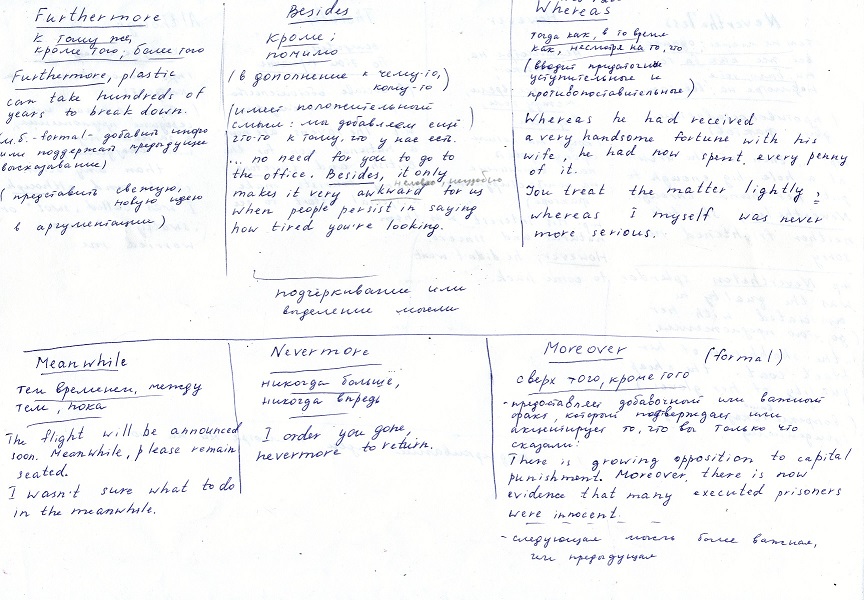 Furthermore
к тому же,
кроме того; более того
Furthermore, plastic
can take hundreds of
years to break down.
(м.б. - formal - добавит инфо
или поддержал предыдущие
высказывание)
(представить свежую,
новую идею
в аргументации)
Besides
кроме;
помимо
(в дополнение к чему-то,
кому-то)
(имеет положительный
смысл: мы добавляем ещё
что-то к тому, что у нас есть.
... no need for you to go to
the office. Besides, it only
неловко, неудобно
makes it very awkward for us
when people persist in saying
how tired you're looking.
подчёркивание или
выделение мысли
Whereas
тогда как, в то время
как, несмотря на то, что
(вводит придаточные
уступительные и
противопоставительные)
Whereas he had received
a very handsome fortune with his
wife, he had now spent every penny
of it.
You treat the matter lightly,
whereas I myself was never
more serious.
Meanwhile
тем временем, между
тем, пока
The flight will be announced
soon. Meanwhile, please remain
seated.
I wasn't sure what to do
in the meanwhile.
Nevermore
никогда больше,
никогда впредь
I order you gone,
nevermore to return.
Moreover (formal)
сверх того, кроме того
- предоставляет добавочной или важной
факт, который подтверждает или
акцентирует то, что вы только что
сказали:
There is growing opposition to capital
punishment. Moreover, there is now
evidence that many executed prisoners
were innocent.
- следующая мысль более важная,
чем предыдущая